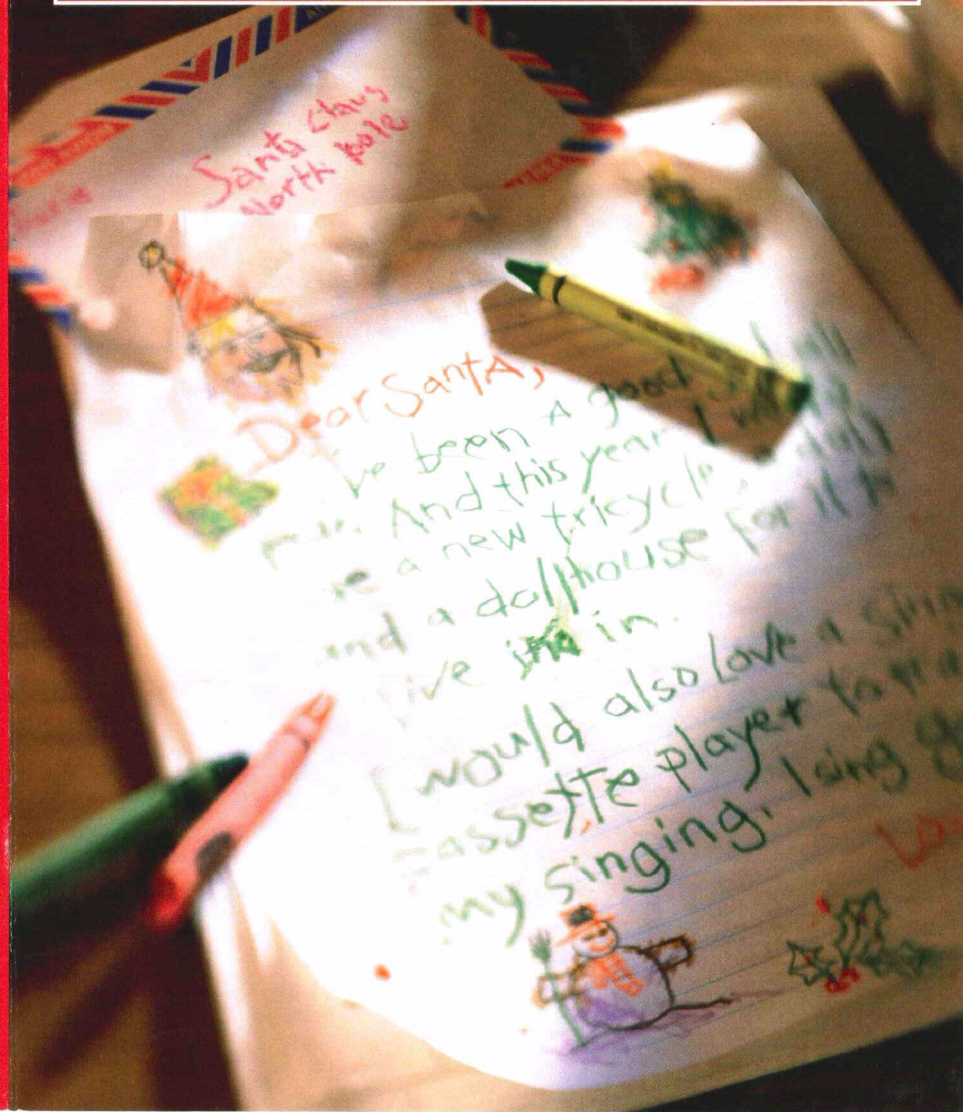 Santa Claus
North Pole
Dear Santa,
I've been A good all
And this year I
a new tricycle, doll
and a dollhouse for it to
live in.
I would also love a
cassette player to
my singing. I sing